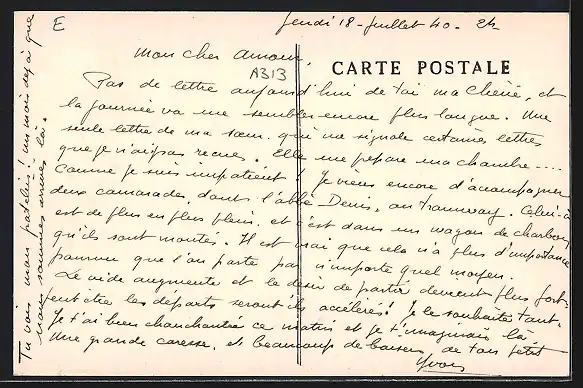 Jeudi 18 - Juillet 40 - 2h
E
mon cher amour,
A313
CARTE POSTALE
Pas de lettre aujourd'hui de toi ma chérie, et
la journée va me sembler encore plus longue. Une
seule lettre de ma sœur qui me signale certaines lettres
que je n'ai pas reçues. Elle me prépare ma chambre ....
Comme je suis impatient! Je viens encore d'accompagner
deux camarades, dont l'abbé Denis, au tramway. Celui-ci
est de plus en plus plein, et c'est dans un wagon de charbon
qu'ils sont montés. Il est vrai que cela n'a plus d'importance
pourvu que l'on parte par n'importe quel moyen.
Le vide augmente et le désir de partir devient plus fort.
peut être les départs seront ils accélérés! Je le souhaite tant.
Je t'ai bien chanchantée ce matin et je t'imaginais là
Une grande caresse, et beaucoup de baisers, de ton petit
Yvon
Tu vois mon patelin! un mois déjà que
nous sommes là.